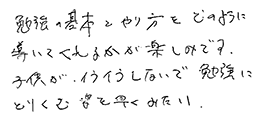 勉強の基本とやり方をどのように
導いてくれるかが楽しみです.
子供が、イライラしないで 勉強に
とりくむ 姿を早くみたい.